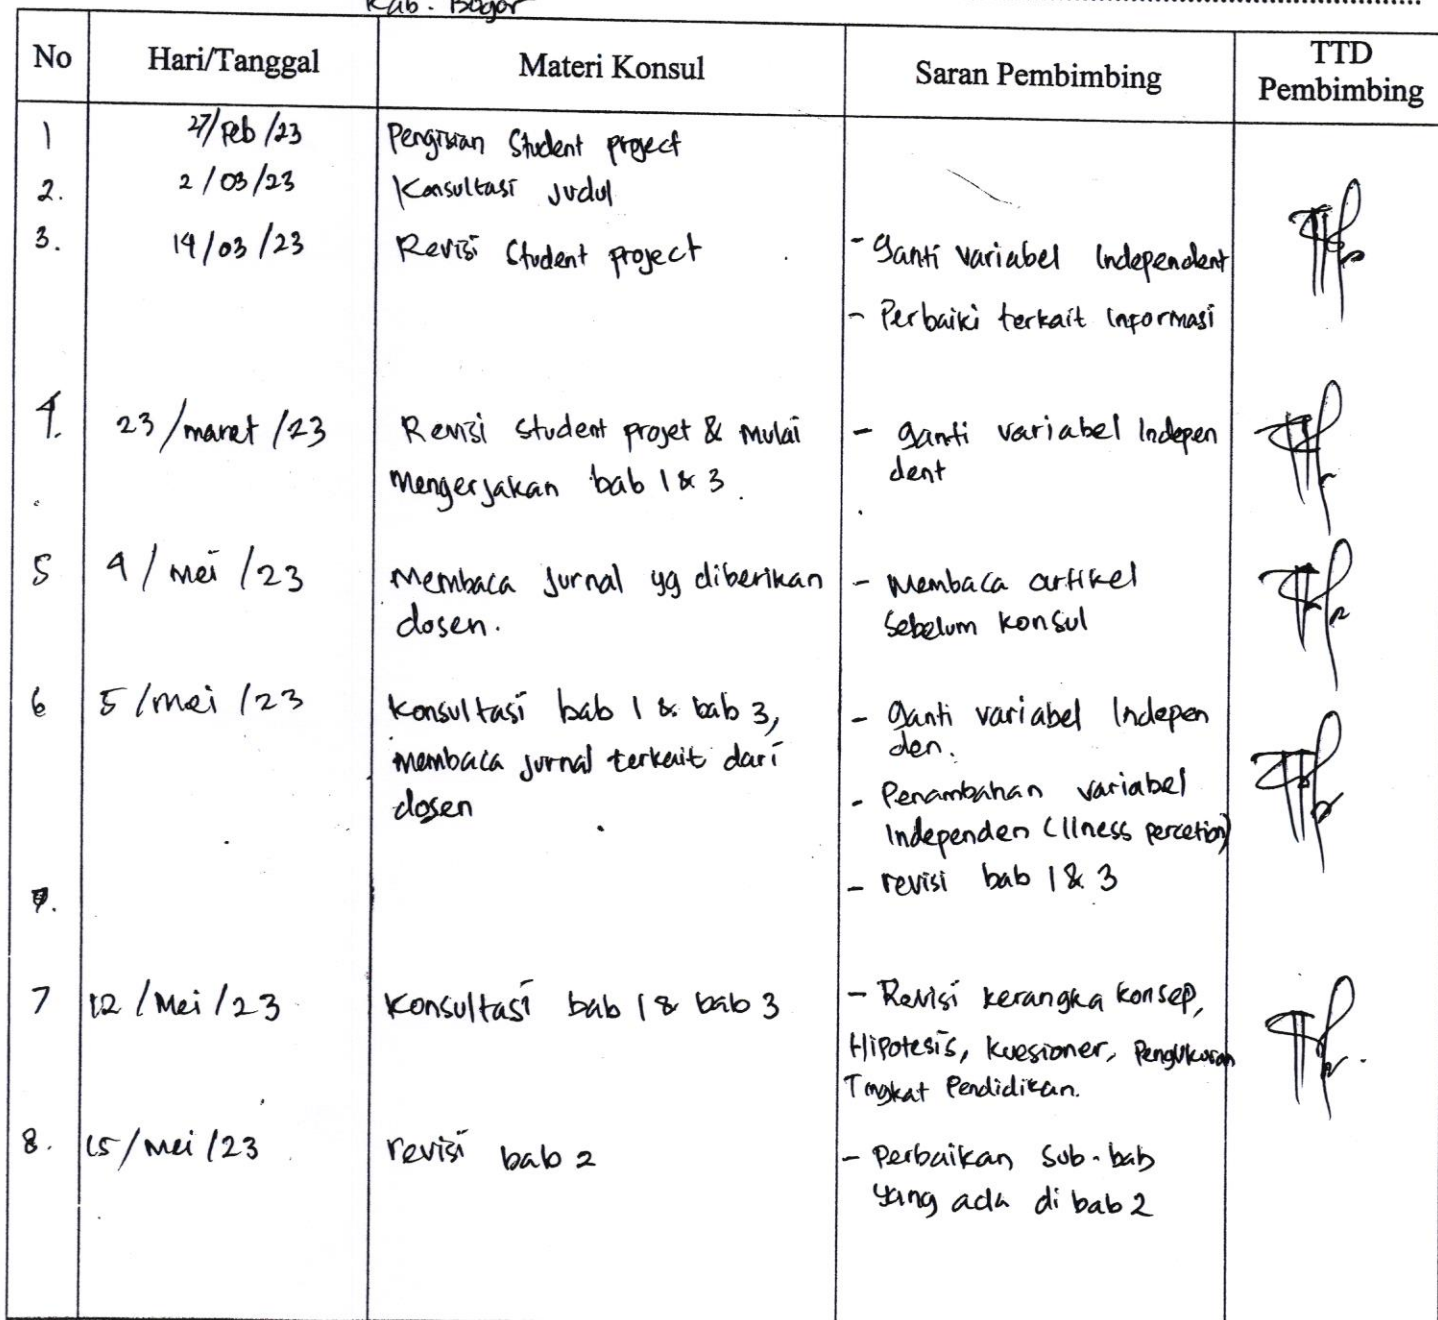 Kab. Bogor
No Hari/Tanggal Materi Konsul Saran Pembimbing TTD Pembimbing
1 27/Feb/23 Pengisian Student project
2. 2/03/23 Konsultasi Judul
3. 14/03/23 Revisi Student project - Ganti variabel Independent
- Perbaiki terkait Informasi
4. 23/maret/23 Revisi student projet & Mulai - ganti variabel Indepen
mengerjakan bab 1 & 3. dent
5 4/mei/23 Membaca Jurnal yg diberikan - Membaca artikel
dosen. sebelum konsul
6 5/mei/23 Konsultasi bab 1 & bab 3, - Ganti variabel Indepen
membaca jurnal terkait dari den.
dosen - Penambahan variabel
Independen (Ilness percetion)
- revisi bab 1 & 3
7 12/Mei/23 Konsultasi bab 1 & bab 3 - Revisi kerangka konsep,
Hipotesis, kuesioner, Pengukuran
Tingkat Pendidikan.
8. 15/mei/23 revisi bab 2 - Perbaikan Sub-bab
yang ada di bab 2